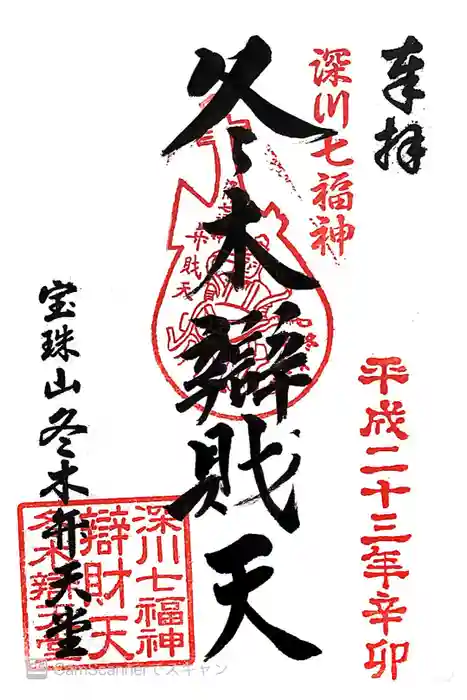 奉拝
平成二十三年辛卯
深川七福神
冬木辯財天
深川七福神
弁財天
宝珠山冬木弁天堂
深川七福神
辯財天
冬木辯天堂
CamScannerでスキャン